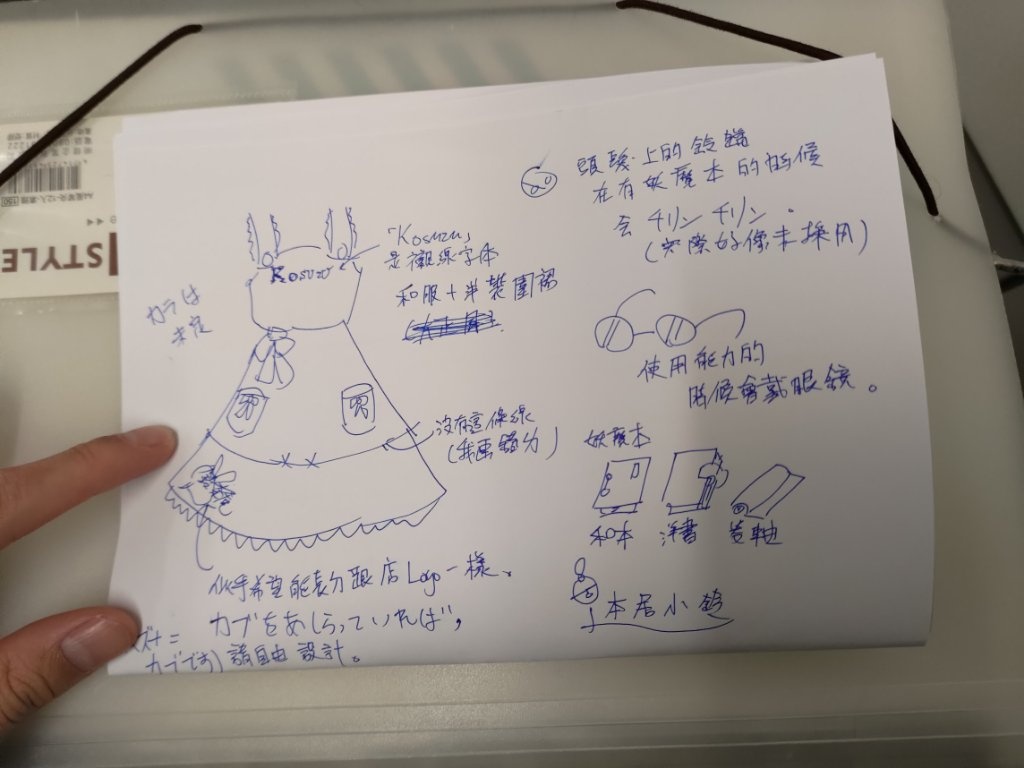 頭髮上的鈴鐺
在有妖魔本的時候
会 チリン チリン.
(实際好像未採用)
Kosuzu
「Kosuzu」
是襯線字体
和服+半裝圍裙
カラは
未定
使用能力的
時候會戴眼鏡。
沒有這條線
(我画錯ㄌ)
妖魔本
和本 洋書 巻軸
似乎希望能表分跟店Logo一樣、
カブをあしらっていれば,
カブです) 請自由設計。
本居小鈴
STYLE